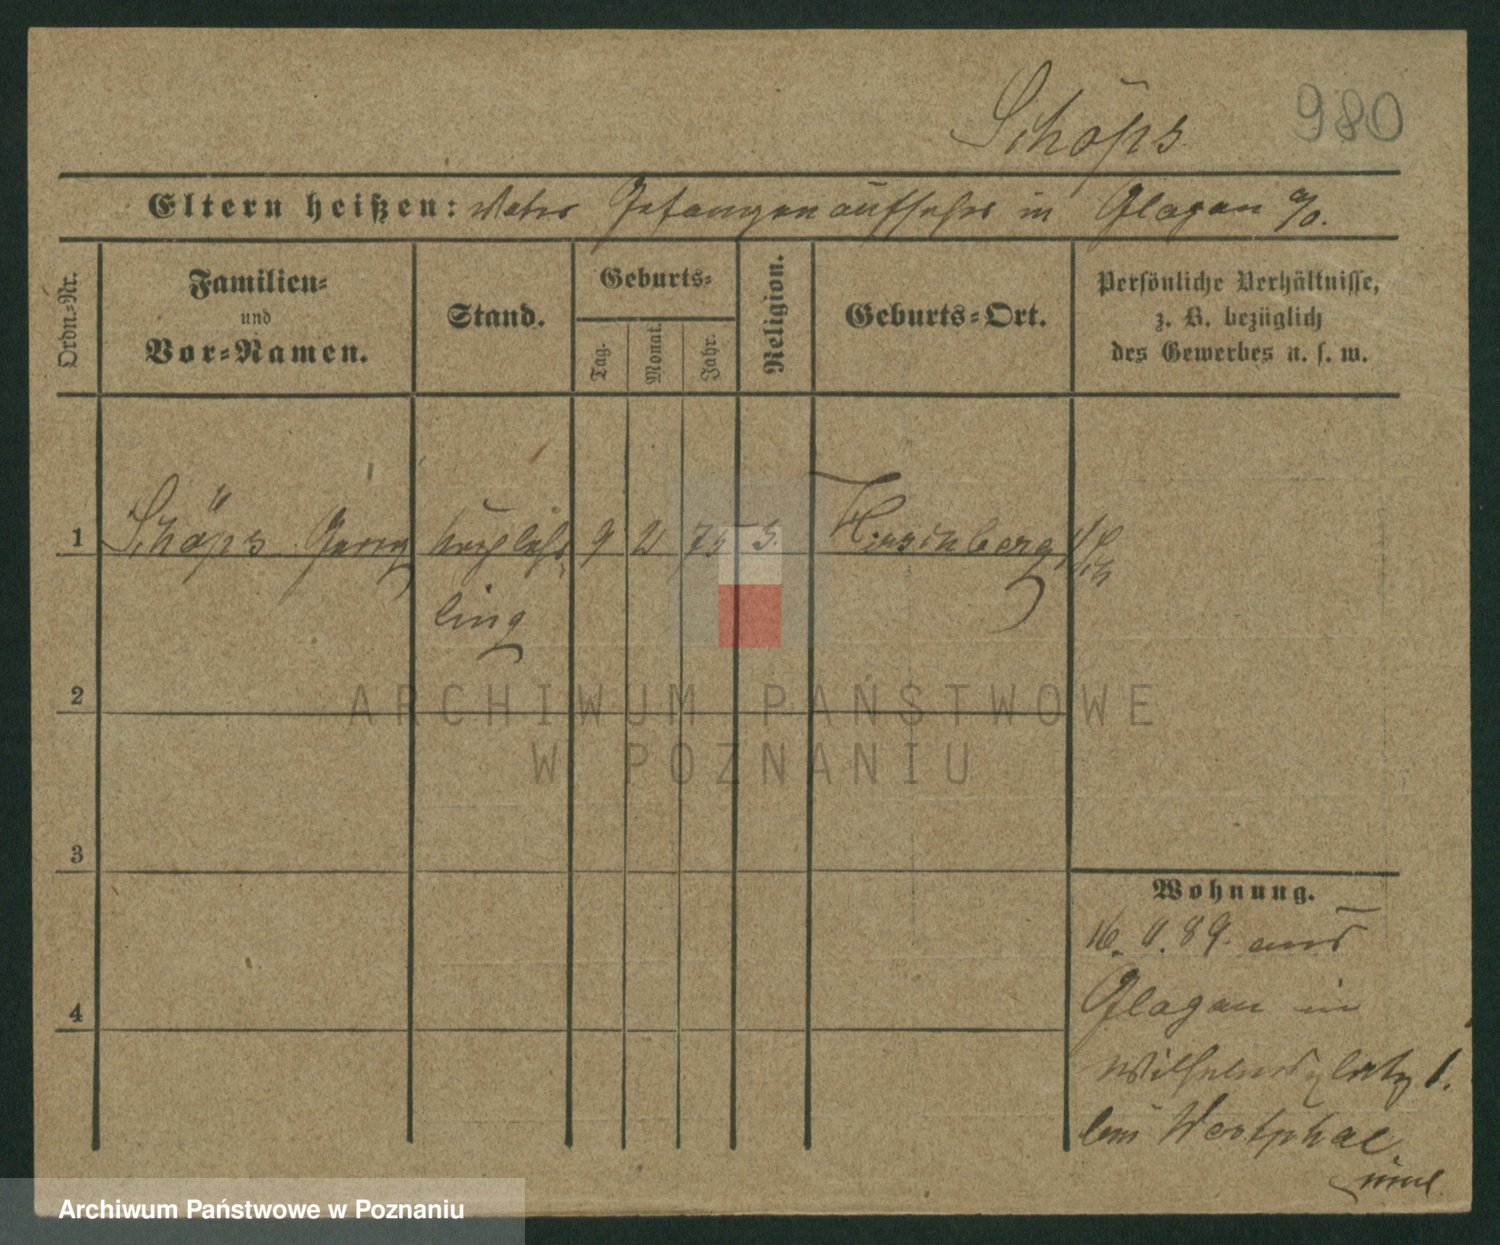 Schöps 980
Eltern heißen: Vater Gefangenaufseher in Glogau a/O.
Ordn.-Nr.
Familien-
und
Vor-Namen.
Stand.
Geburts-
Tag.
Monat.
Jahr.
Religion.
Geburts-Ort.
Persönliche Verhältnisse,
z. B. bezüglich
des Gewerbes u. s. w.
1 Schöps Georg 9 2 75 Hirschberg
ling
2
3
4
Wohnung.
16. 89. aus
Glogau in
Wilhelmsplatz 1.
bei Westphal
ARCHIWUM PAŃSTWOWE
W POZNANIU
Archiwum Państwowe w Poznaniu